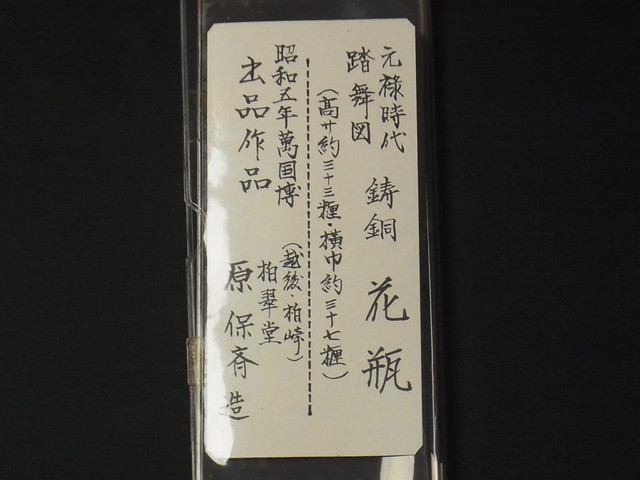 元禄時代
踏舞図 鋳銅 花瓶
(高サ約三十三糎・横巾約三十七糎)
昭和五年萬国博
出品作品
(越後・柏崎)
柏翠堂
原保斉造